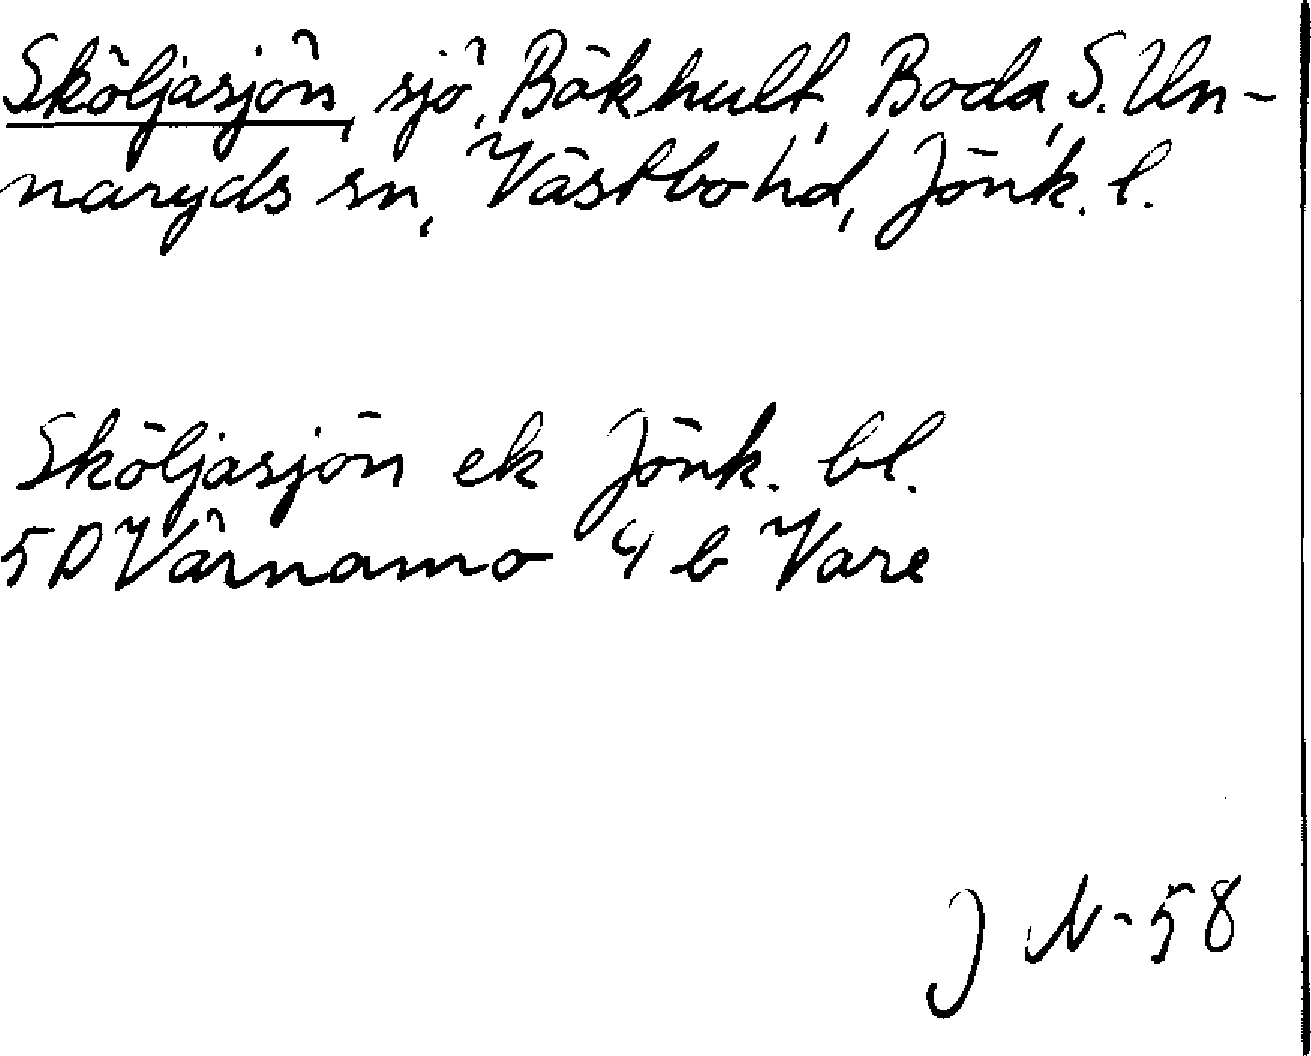 Sköljasjön, sjö, Bökhult, Boda, S. Un-
naryds sn, Västbo hd, Jönk. l.
Sköljasjön ek Jönk. bl.
5D Värnamo 4 b Vare
J N-58